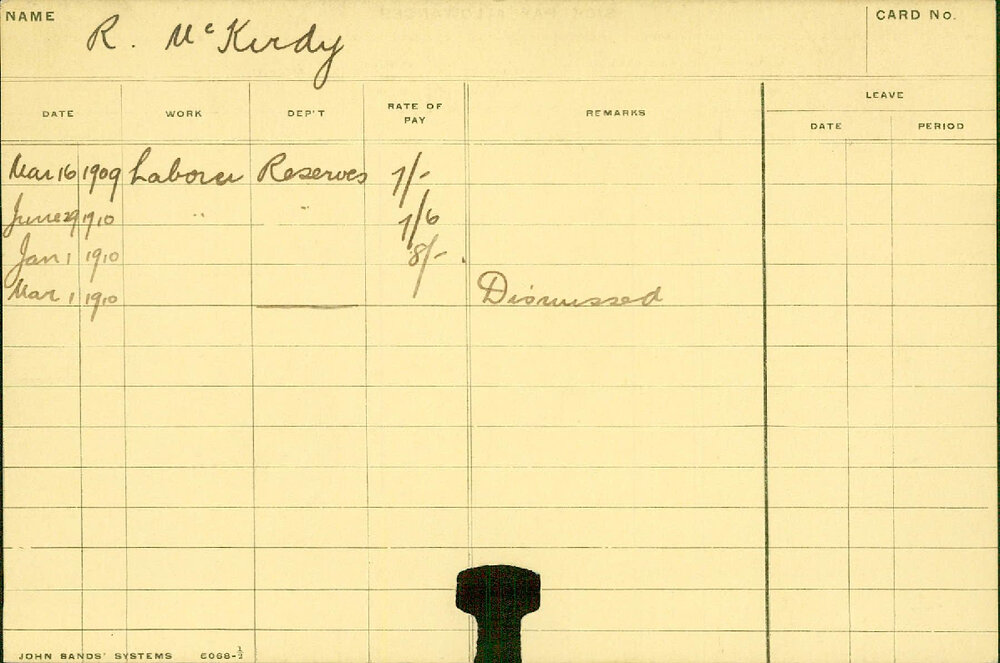 NAME R. McKirdy CARD No.
LEAVE
DATE WORK DEP'T RATE OF PAY REMARKS DATE PERIOD
Mar 16 1909 Laborer Reserves 7/-
June 29 1910 " " 7/6
Jan 1 1910 8/-
Mar 1 1910 Dismissed
JOHN SANDS' SYSTEMS 6068-½